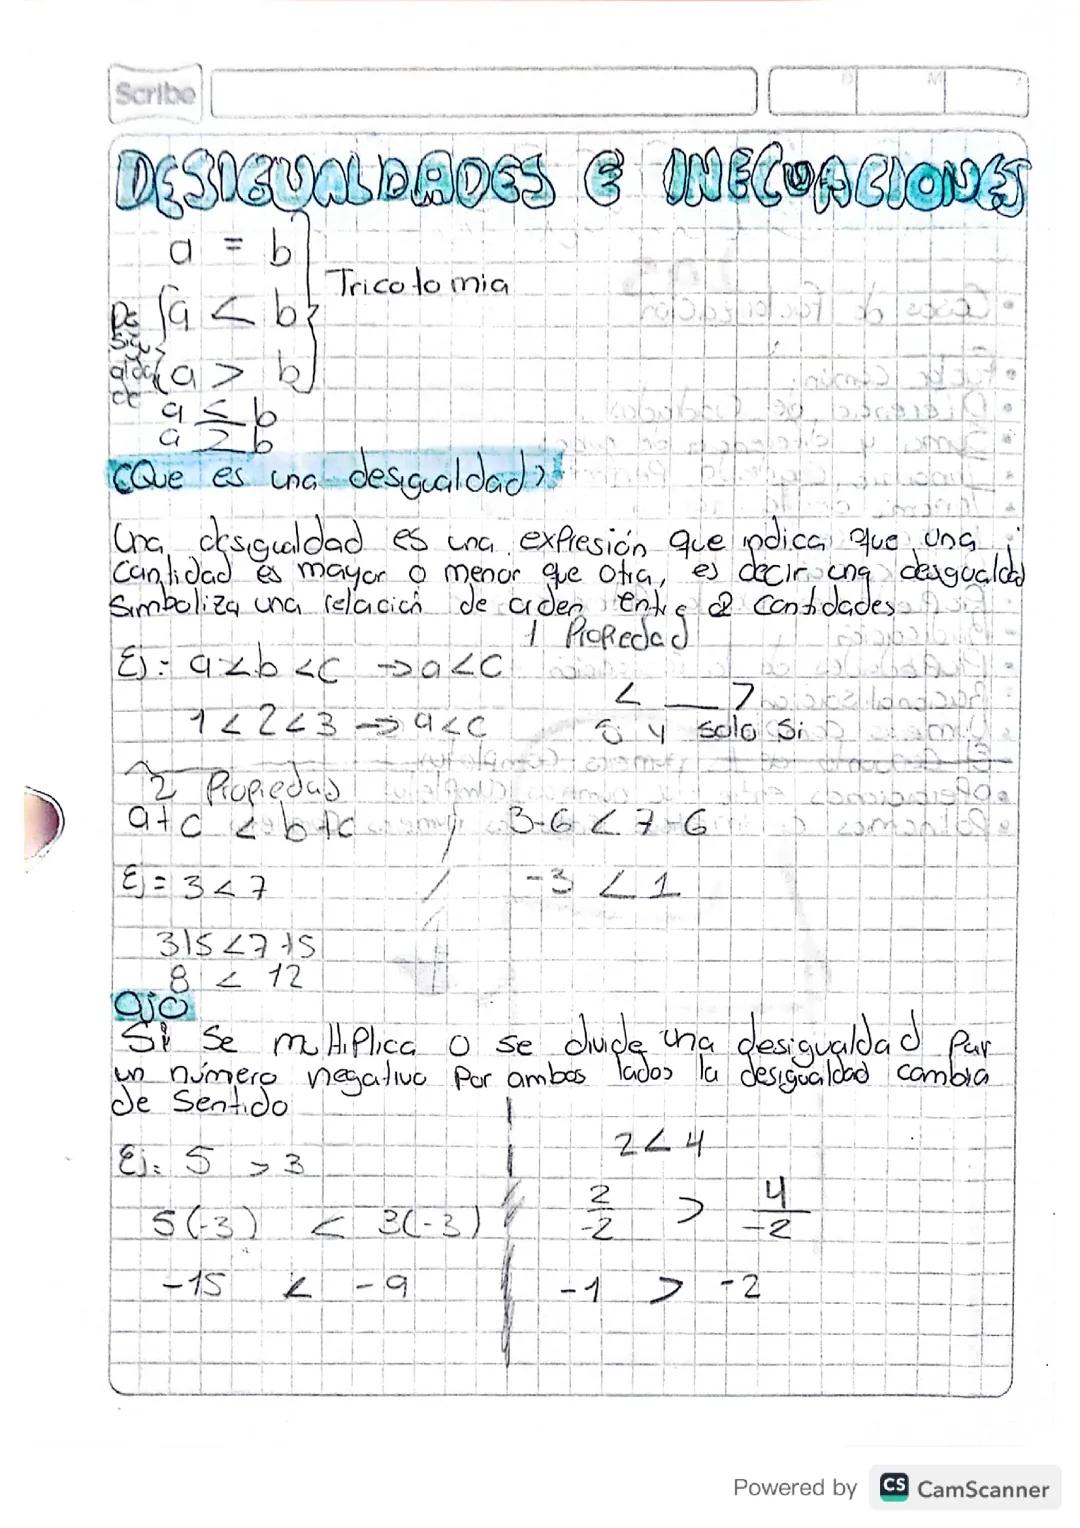 Scribe
D M A
DESIGUALDADES E INECUACIONES
a = b
Tricotomia
De sigu aldad de
a < b
a > b
a ≤ b
a ≥ b
¿Que es una desigualdad?
Una desigualdad es una expresión que indica que una
cantidad es mayor o menor que otra, es decir una desgualdad
Simboliza una relación de orden entre 2 cantidades
1 Propiedad
Ej: a<b<c → a<c
< __ >
1<2<3 → a<c
solo si
2 Propiedad
a+c < b+c
3-6 < 7-6
Ej = 3<7
-3 < 1
3+5<7+5
8 < 12
Ojo
Si se multiplica o se divide una desigualdad por
un número negativo por ambos lados la desigualdad cambia
de Sentido
2<4
Ej: 5 > 3
2/-2 > 4/-2
5(-3) < 3(-3)
-15 < -9
-1 > -2
Powered by CS CamScanner